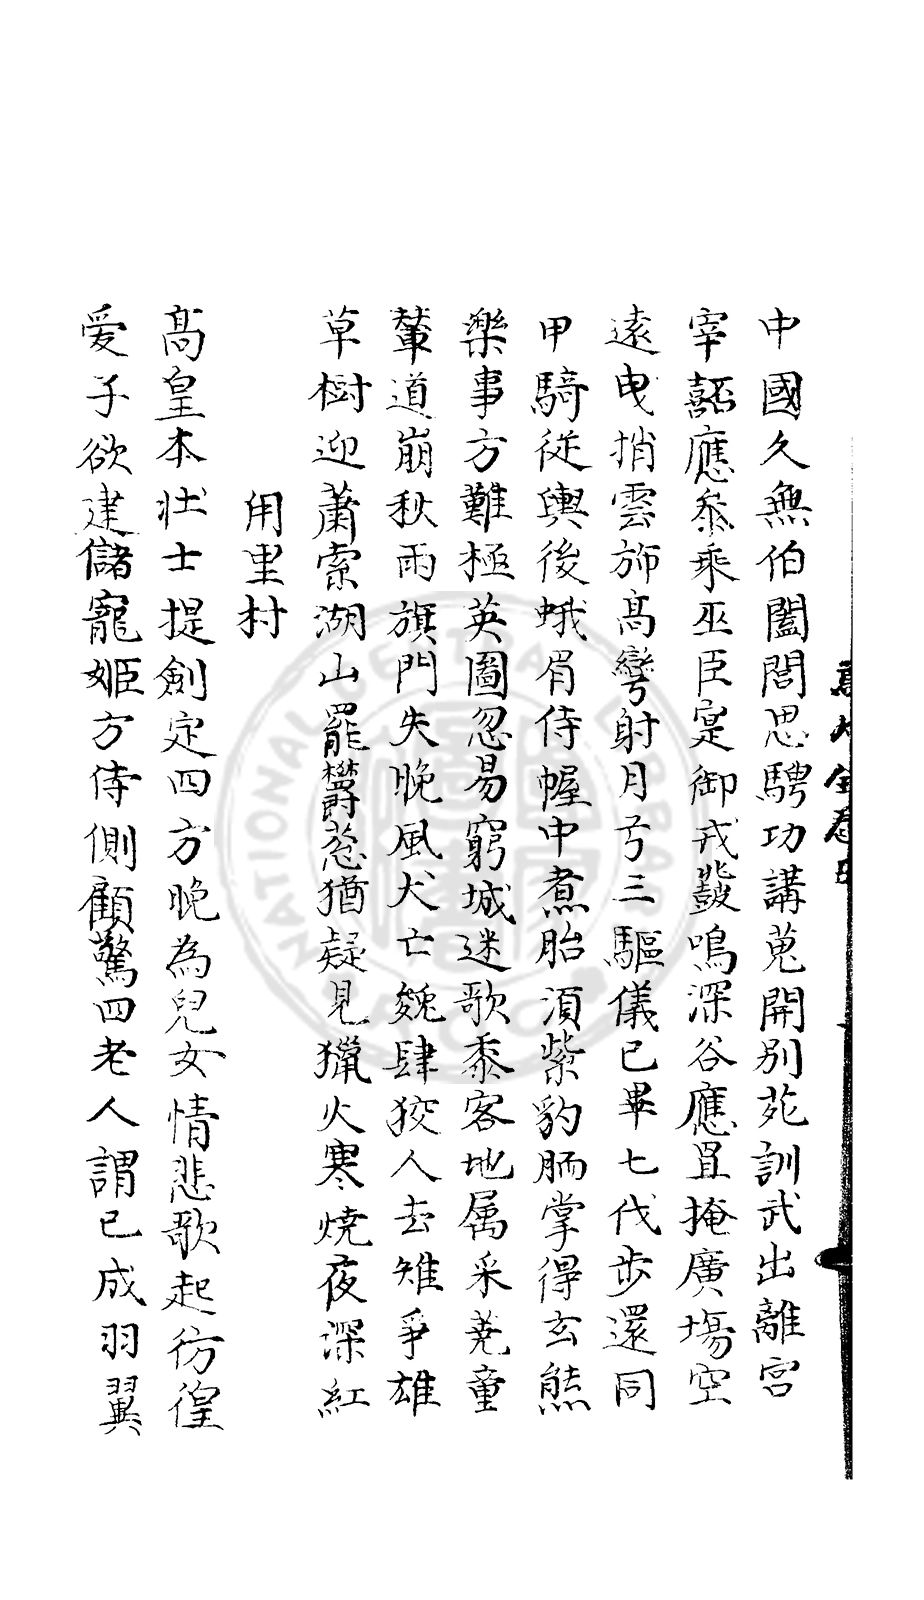 中國久無伯闔閭思騁功講蒐開別苑訓武出離宮
宰嚭應叅乘巫臣寔御戎鼓鳴深谷應罝掩廣塲空
遠曳捎雲斾高彎射月弓三驅儀已畢七伐步還同
甲騎從輿後蛾眉侍幄中煮胎湏紫豹胹掌得玄熊
樂事方難極英圖忽易窮城迷歌黍客地属采蕘童
輦道崩秋雨旗門失晚風犬亡魏肆狡人去雉爭雄
草樹迎蕭索湖山罷欝葱猶疑見獵火寒燒夜深紅
用里村
高皇本壯士提劍定四方晚為兒女情悲歌起彷徨
愛子欲建儲寵姬方侍側顧驚四老人謂已成羽翼
NATIONAL CENTRAL LIBRARY